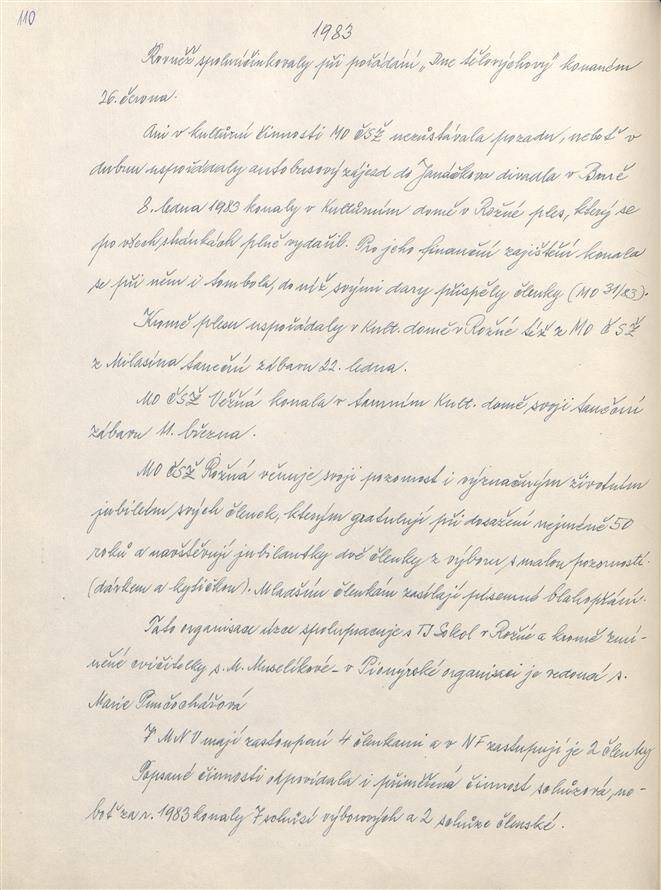 110
1983
Rovněž spoluúčinkovaly při pořádání „Dne tělovýchovy" konaném
26. června.
Ani v kulturní činnosti MO ČSŽ nezůstávala pozadu, neboť v
dubnu uspořádaly autobusový zájezd do Janáčkova divadla v Brně
8. ledna 1983 konaly v Kulturním domě v Rožné ples, který se
po všech stránkách plně vydařil. Pro jeho finanční zajištění konala
se při něm i tombola, do níž svými dary přispěly členky (MO 31/83).
Kromě plesu uspořádaly v Kult. domě v Rožné též z MO ČSŽ
z Milasína taneční zábavu 22. ledna.
MO ČSŽ Věžná konala v tamním Kult. domě svoji taneční
zábavu 11. března.
MO ČSŽ Rožná věnuje svoji pozornost i význačným životním
jubileím svých členek, kterým gratulují při dosažení nejméně 50
roků a navštěvují jubilantky dvě členky z výboru s malou pozorností
(dárkem a kytičkou). Mladším členkám zasílají písemné blahopřání.
Tato organisace úzce spolupracuje s TJ Sokol v Rožné a kromě zmí-
něné cvičitelky s. M. Muselíkové - v Pionýrské organisaci je vedoucí s.
Marie Punčochářová
V MNV mají zastoupení 4 členkami a v NF zastupují je 2 členky
Popsané činnosti odpovídala i přiměřená činnost schůzová, ne-
boť za r. 1983 konaly 7 schůzí výborových a 2 schůze členské.